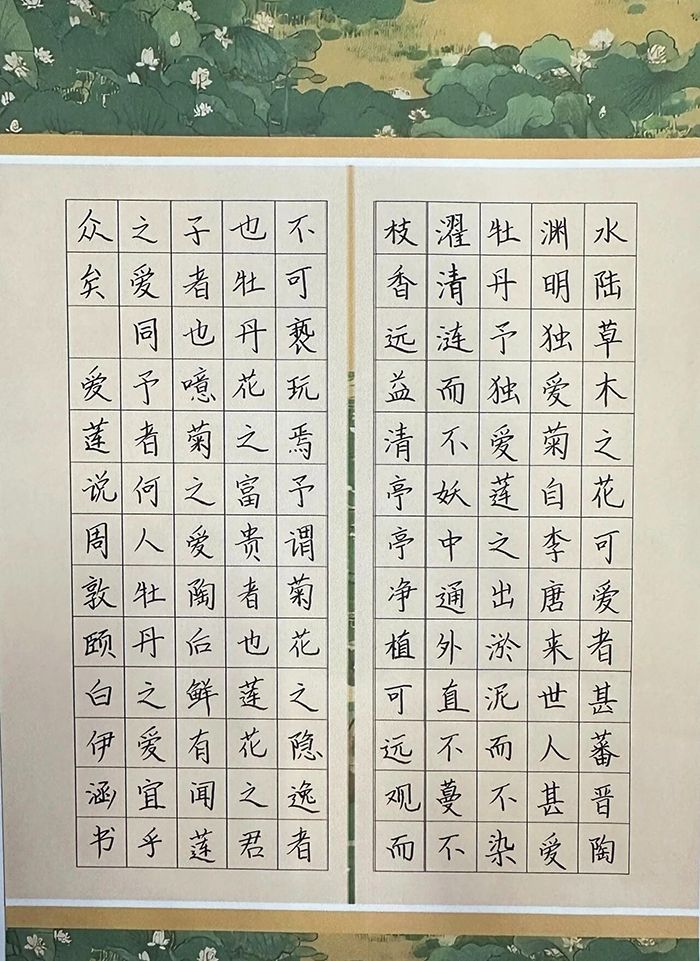 水陆草木之花可爱者甚蕃晋陶
渊明独爱菊自李唐来世人甚爱
牡丹予独爱莲之出淤泥而不染
濯清涟而不妖中通外直不蔓不
枝香远益清亭亭净植可远观而
不可亵玩焉予谓菊花之隐逸者
也牡丹花之富贵者也莲花之君
子者也噫菊之爱陶后鲜有闻莲
之爱同予者何人牡丹之爱宜乎
众矣 爱莲说周敦颐白伊涵书